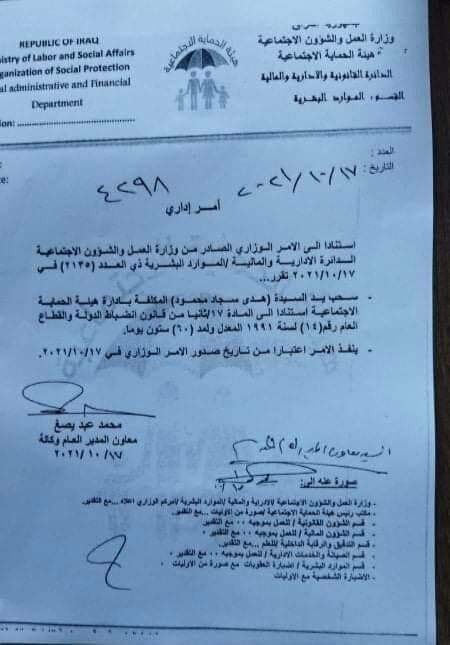 REPUBLIC OF IRAQ
وزارة العمل والشؤون الاجتماعية
istry of Labor and Social Affairs
هيئة الحماية الاجتماعية
rganization of Social Protection
الدائرة القانونية والادارية والمالية
al administrative and Financial
Department
قسم الموارد البشرية
هيئة الحماية الاجتماعية
العدد :
٤٢٩٨
التاريخ : ٢٠٢١/١٠/١٧
أمر إداري
استنادا الى الامر الوزاري الصادر من وزارة العمل والشؤون الاجتماعية
الدائرة الادارية والمالية /الموارد البشرية ذي العدد (٢١٣٥) في
٢٠٢١/١٠/١٧ تقرر...
- سحب يد السيدة (هدى سجاد محمود) المكلفة بادارة هيئة الحماية
الاجتماعية استنادا الى المادة ١٧/ثانيا من قانون انضباط الدولة والقطاع
العام رقم(١٤) لسنة ١٩٩١ المعدل ولمد (٦٠) ستون يوما.
- ينفذ الامر اعتبارا من تاريخ صدور الامر الوزاري في ٢٠٢١/١٠/١٧.
محمد عبد
معاون المدير العام وكالة
٢٠٢١/١٠/١٧
صورة عنه الى:
- وزارة العمل والشؤون الاجتماعية /الادارية والمالية /الموارد البشرية /امركم الوزاري اعلاه ...مع التقدير.
- مكتب رئيس هيئة الحماية الاجتماعية /صورة من الاوليات ...مع التقدير.
- قسم الشؤون القانونية / للعمل بموجبه ٠٠ مع التقدير.
- قسم الشؤون المالية / للعمل بموجبه ٠٠ مع التقدير.
- قسم التدقيق والرقابة الداخلية /للعلم ...مع التقدير.
- قسم الصيانة والخدمات الادارية / للعمل بموجبه ٠٠ مع التقدير
- قسم الموارد البشرية / اضبارة العقوبات مع صورة من الاوليات
- الاضبارة الشخصية مع الاوليات